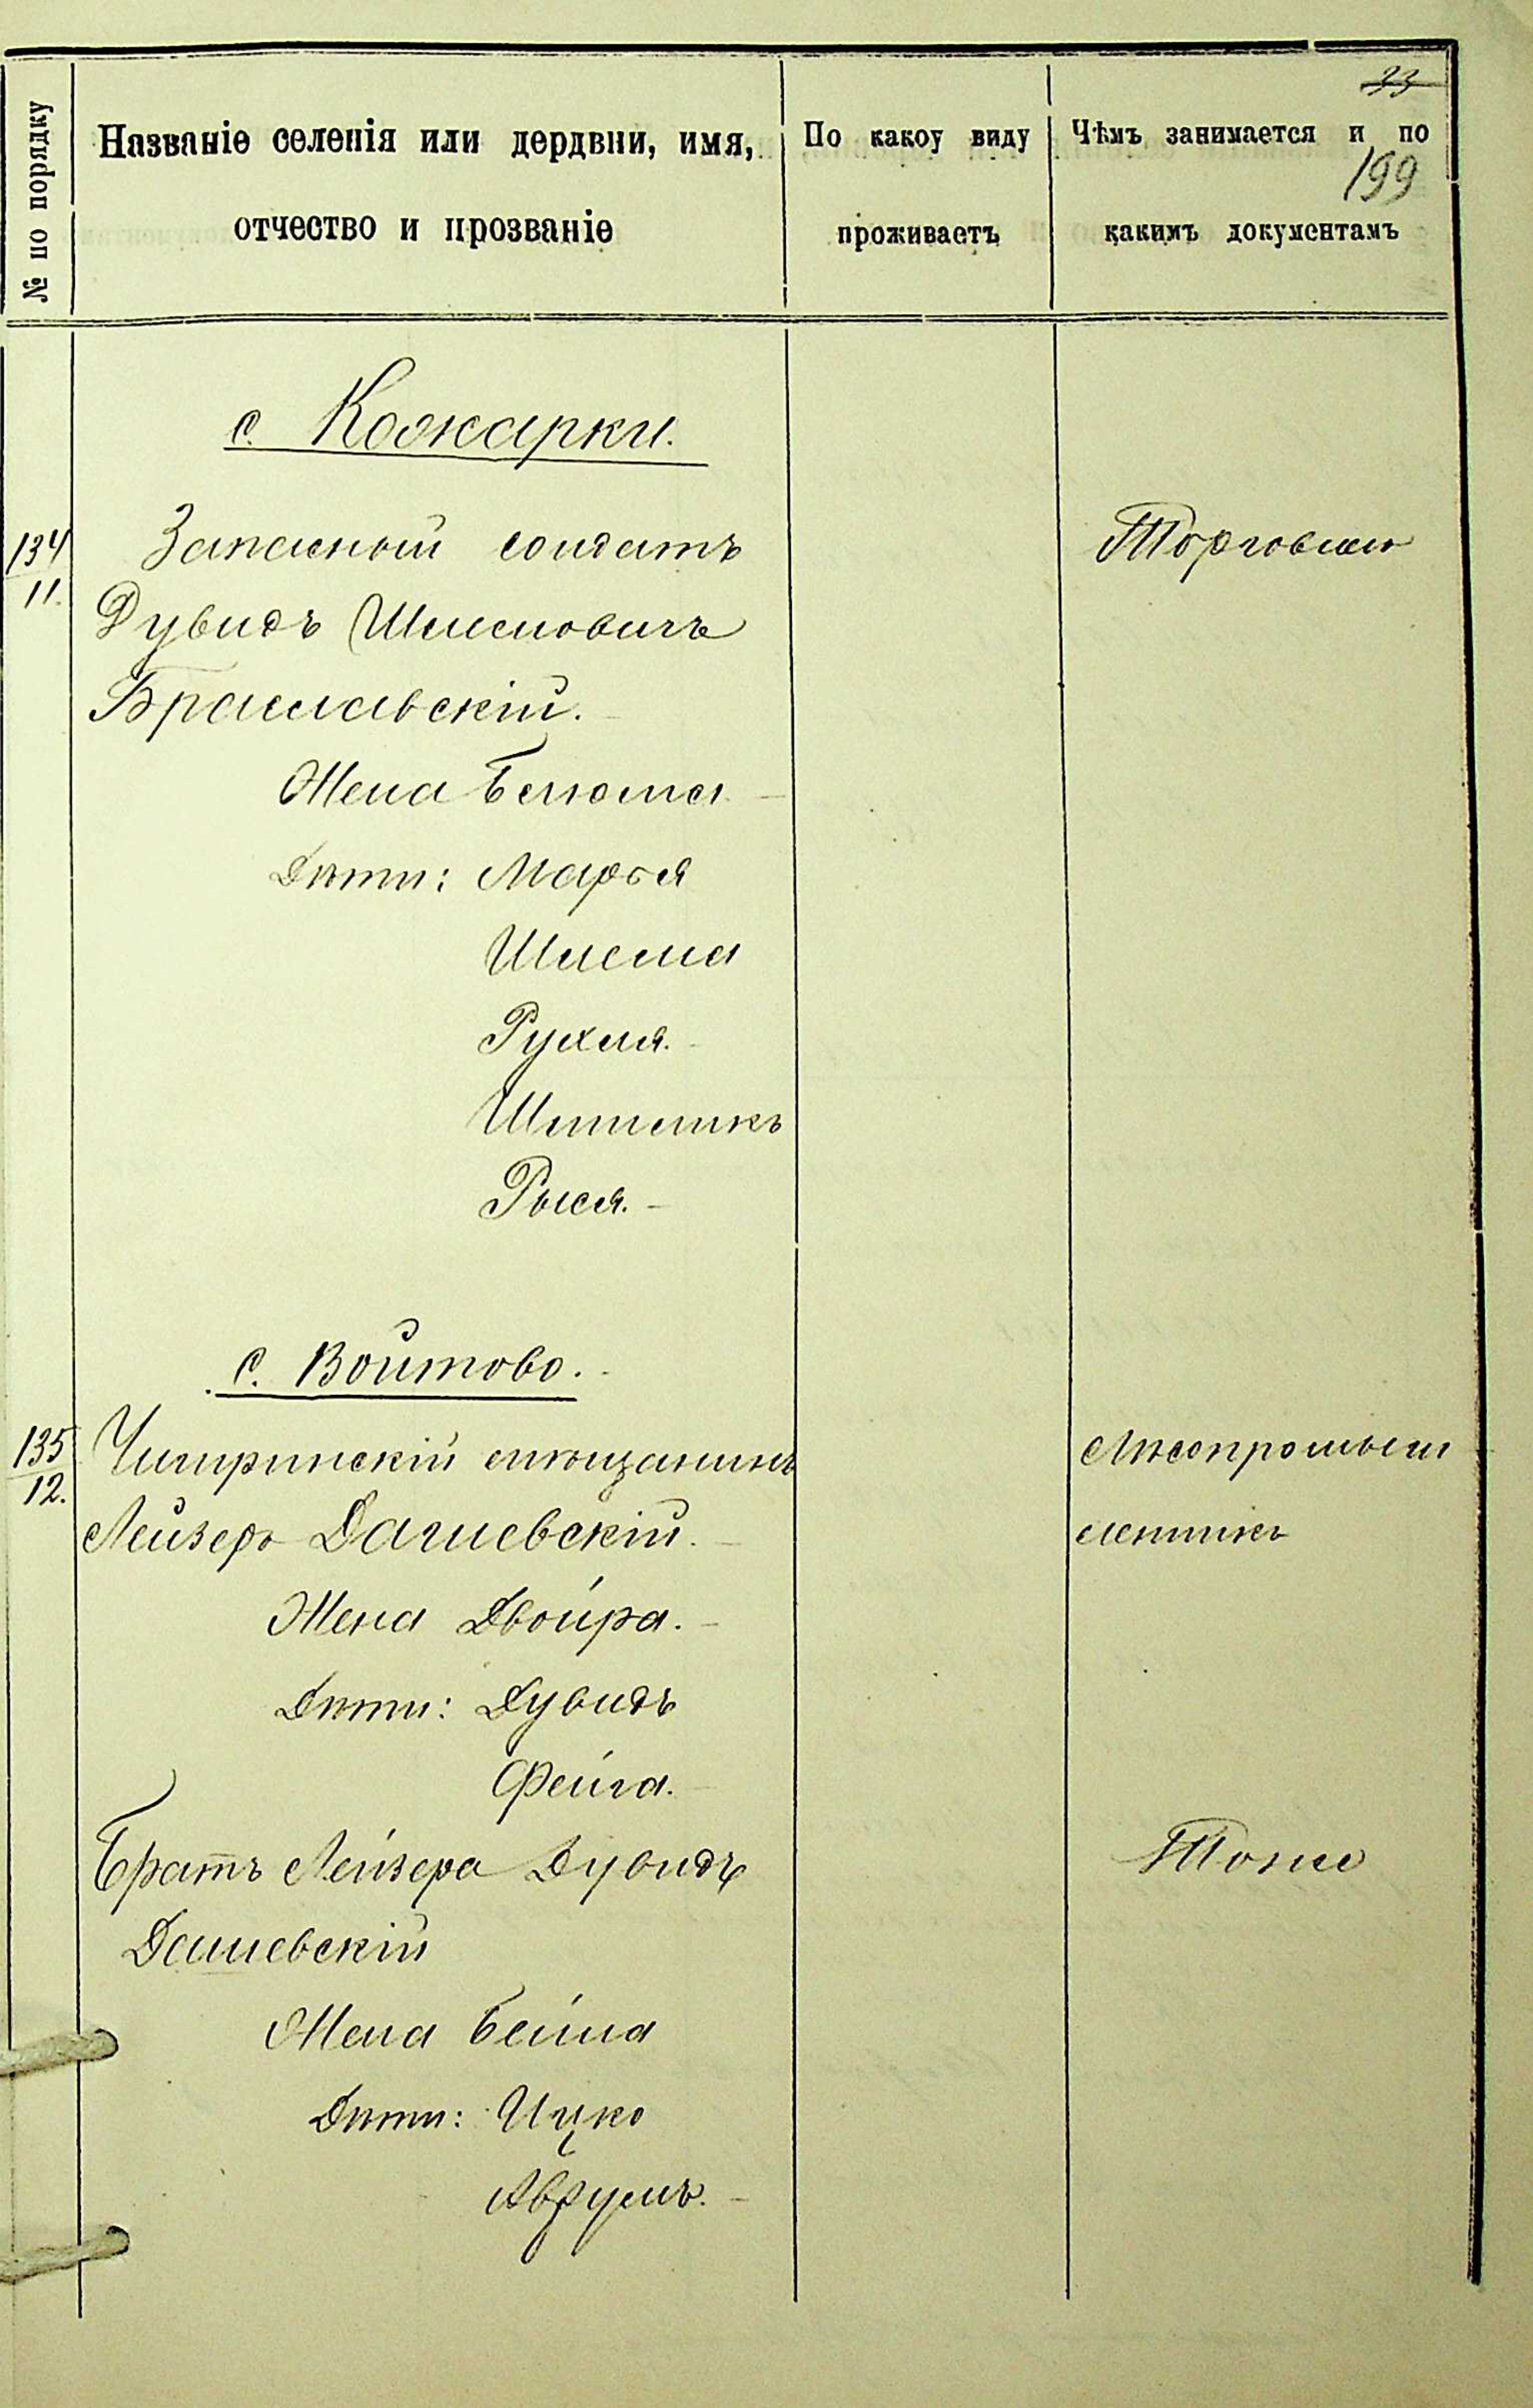 33
199
№ по порядку
Названіе селенія или дердвни, имя,
отчество и прозваніе
По какоу виду
проживаетъ
Чѣмъ занимается и по
какимъ документамъ
с. Кожарки.
134
11.
Запасный солдатъ
Торговлею
Дувидъ Шлемовичъ
Браславскій.
Жена Бельома
Дѣти: Марья
Шлема
Рухля.
Шмиликъ
Рыся.
с. Войтово.
135
12.
Чигиринскій мѣщанинъ
Лѣсопромыш
Лейзеръ Дашевскій.
ленникъ
Жена Двойра.
Дѣти: Дувидъ
Фейга.
Братъ Лейзера Дувидъ
Тоже
Дашевскій
Жена Бейла
Дѣти: Ицко
Аврумъ.